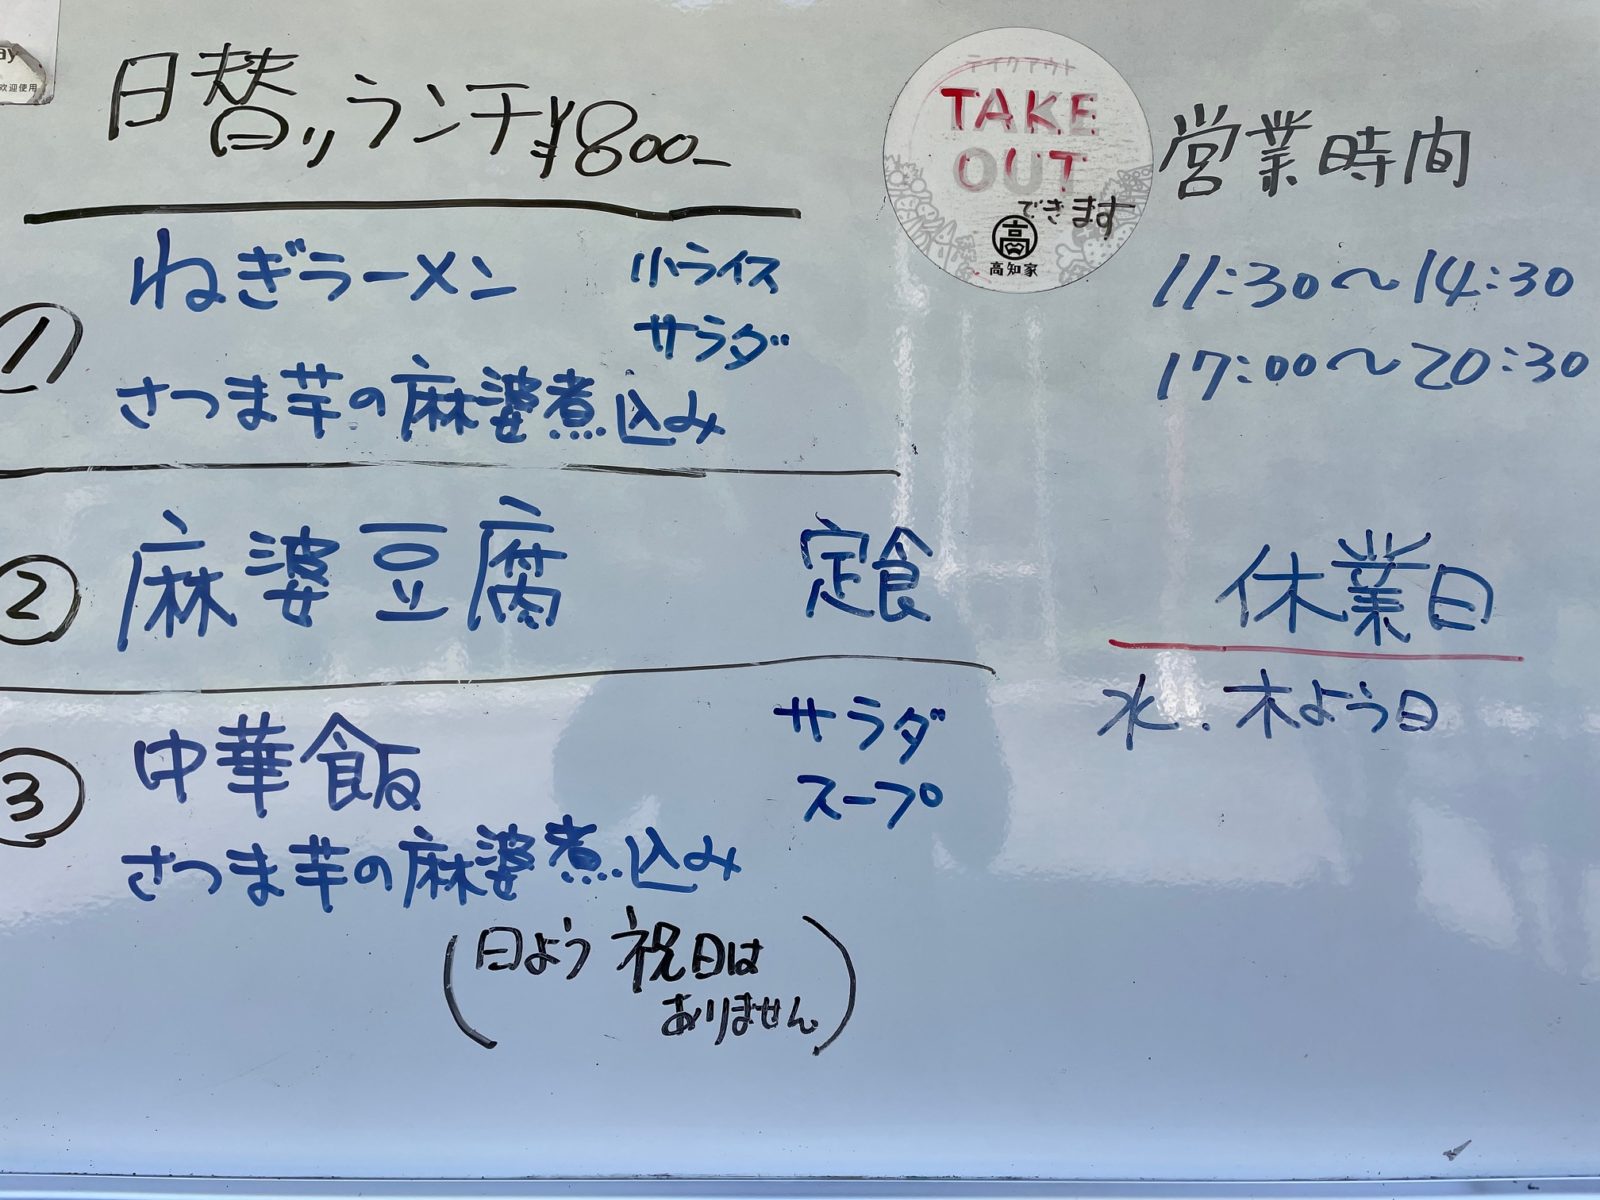 ay
欢迎使用
日替りランチ¥800-
① ねぎラーメン 小ライス
サラダ
さつま芋の麻婆煮込み
② 麻婆豆腐 定食
③ 中華飯 サラダ
スープ
さつま芋の麻婆煮込み
(日よう 祝日は
ありません)
テイクアウト
TAKE
OUT
できます
高
高知家
営業時間
11:30〜14:30
17:00〜20:30
休業日
水.木よう日